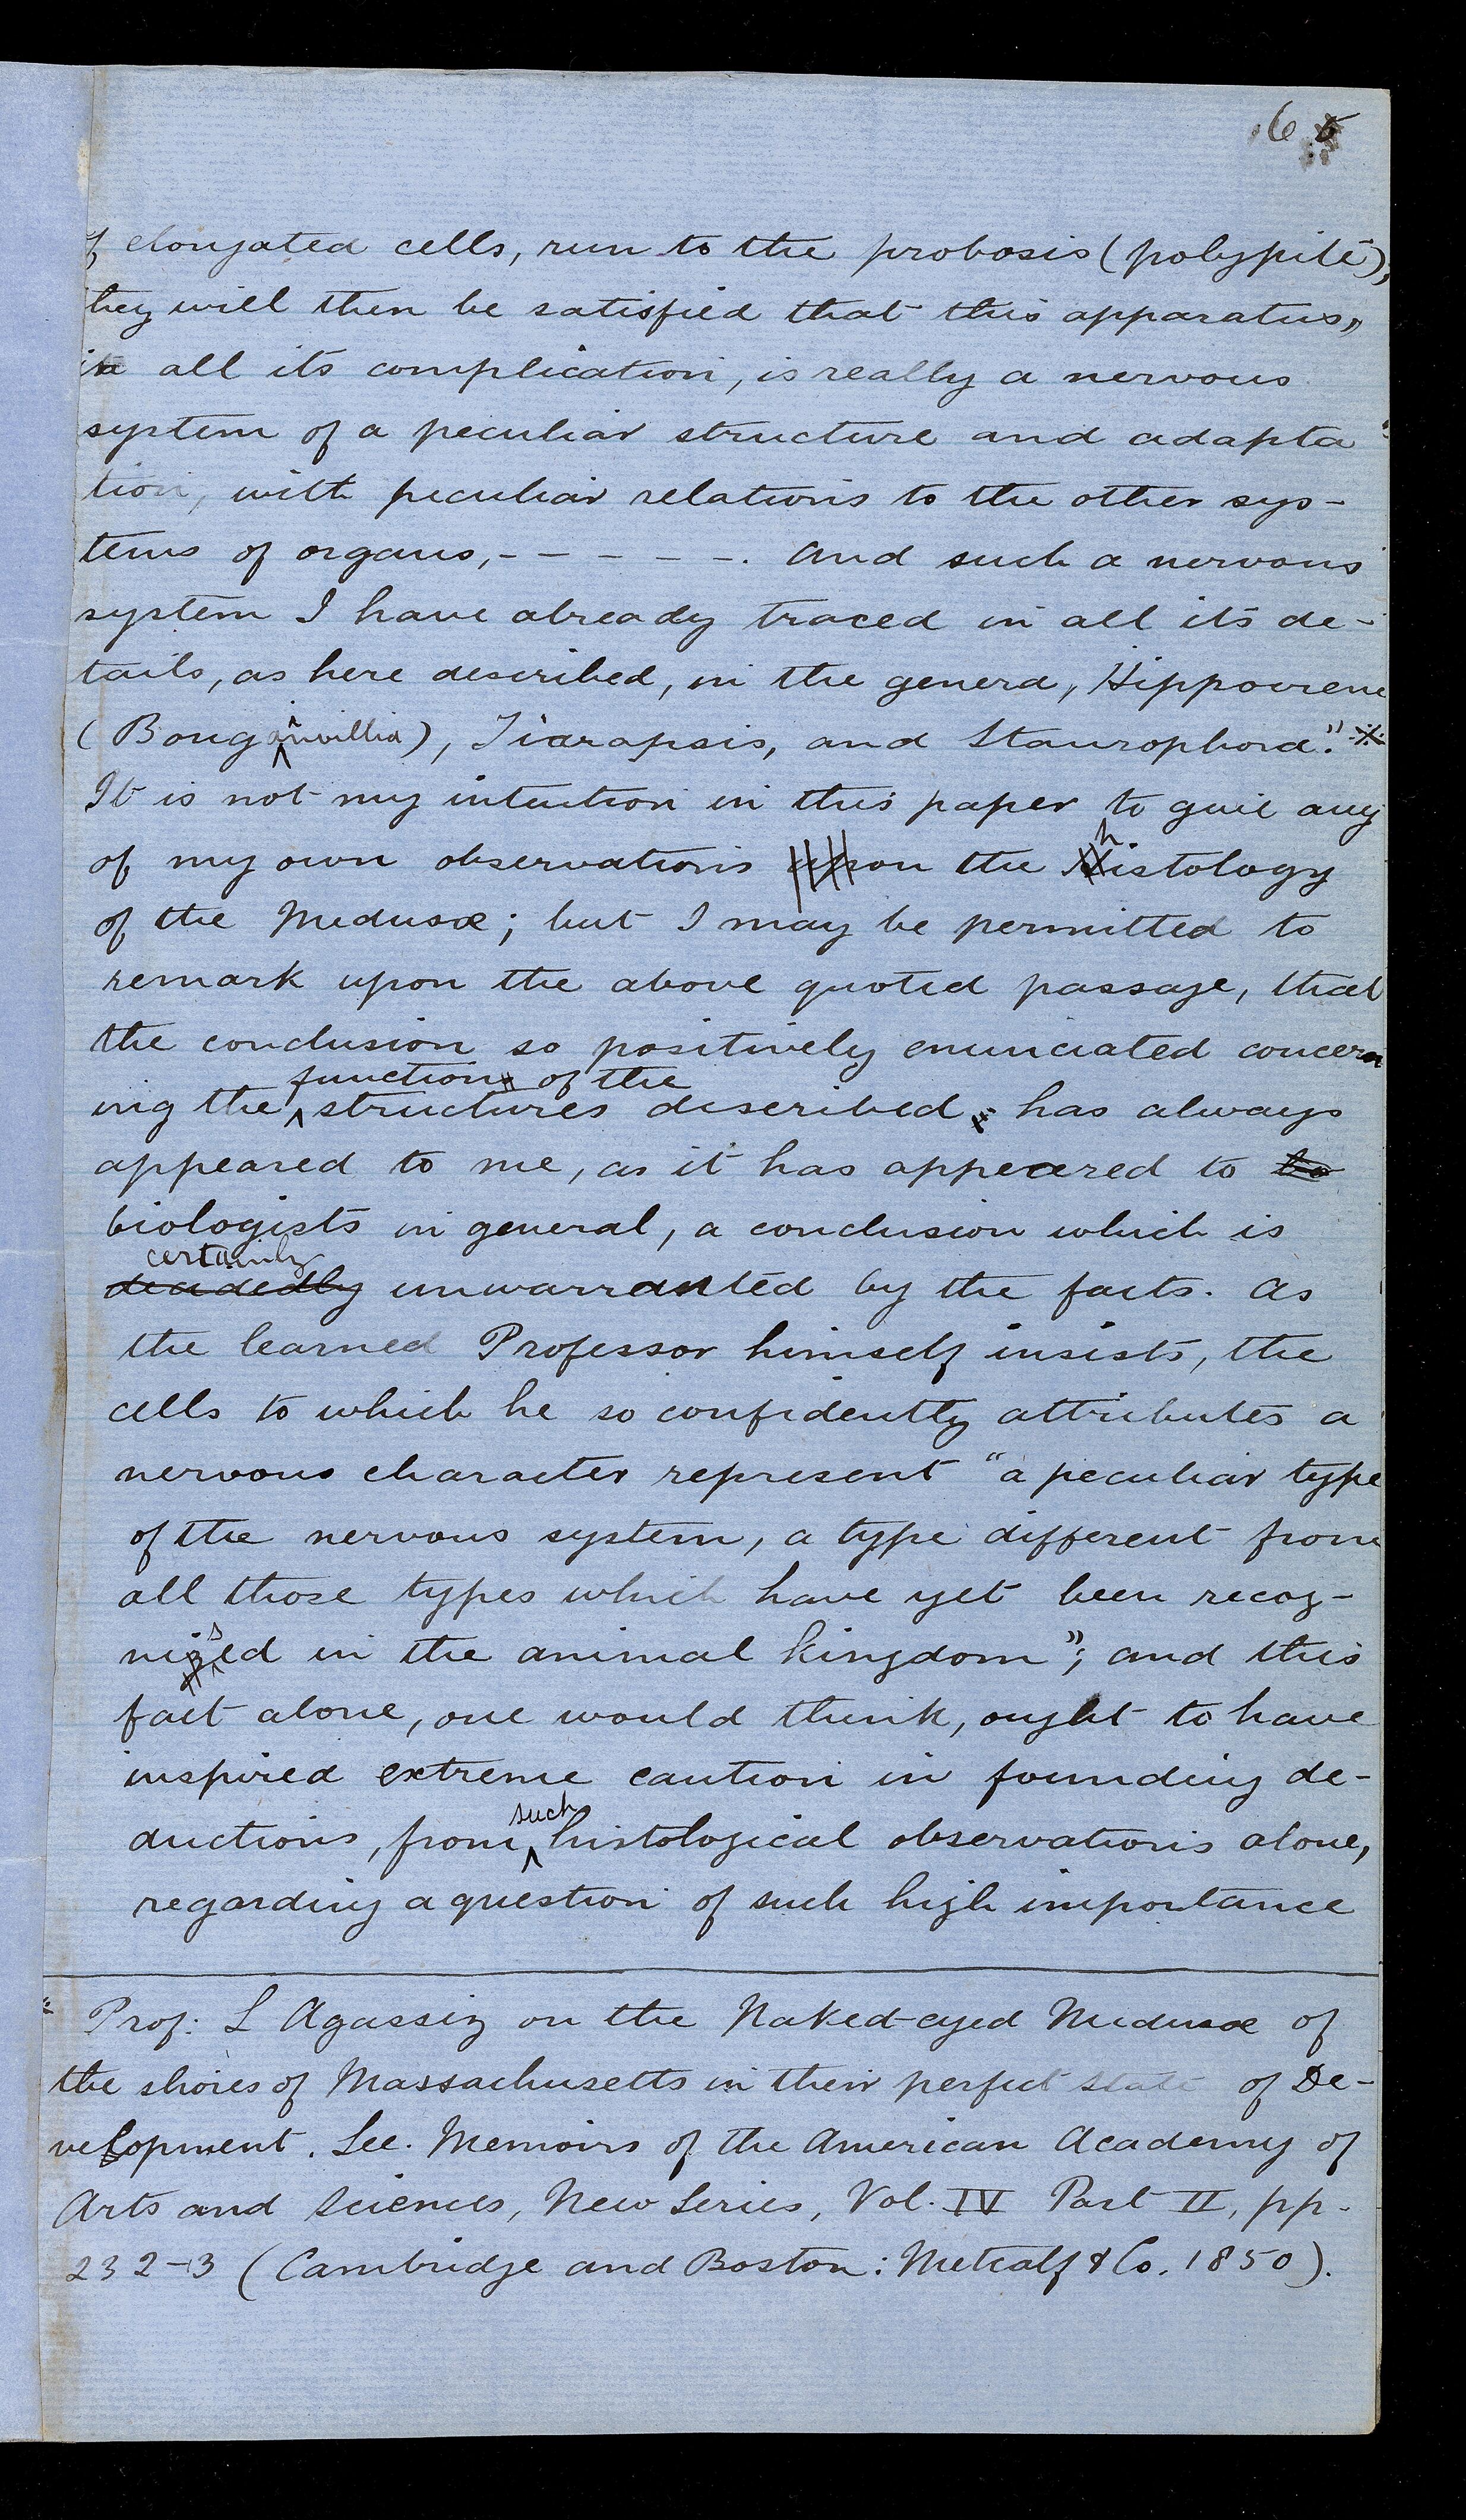 6 5
of elongated cells, run to the probosis (polypite),
they will then be satisfied that this apparatus,
in all its complication, is really a nervous
system of a peculiar structure and adapta
tion, with peculiar relations to the other sys-
tems of organs, - - - - - -. And such a nervous
system I have already traced in all its de-
tails, as here described, in the genera, Hippocrene
(Bougainvillia), Tiaropsis, and Staurophora." ※
It is not my intention in this paper to give any
of my own observations upon the histology
of the Medusæ; but I may be permitted to
remark upon the above quoted passage, that
the conclusion so positively enunciated concern
function of the
ing the structures described, has always
appeared to me, as it has appeared to to
biologists in general, a conclusion which is
certainly
decidedly unwarranted by the facts. As
the learned Professor himself insists, the
cells to which he so confidently attributes a
nervous character represent "a peculiar type
of the nervous system, a type different from
all those types which have yet been recog-
nised in the animal kingdom"; and this
fact alone, one would think, ought to have
inspired extreme caution in founding de-
such
ductions, from histological observations alone,
regarding a question of such high importance
※ Prof: L Agassiz on the Naked-eyed Medusæ of
the shores of Massachusetts in their perfect state of De-
velopment. See. Memoirs of the American Academy of
Arts and Sciences, New Series, Vol. IV Part II, pp.
232-3 (Cambridge and Boston: Metcalf & Co. 1850).